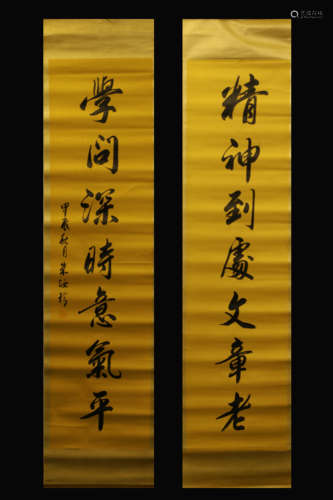 精神到處文章老
學問深時意氣平
甲辰秋月朱汝珍